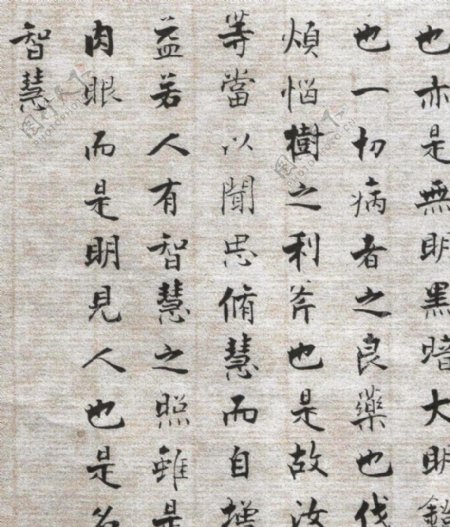 也亦是無明黑暗大明鐙
也一切病者之良藥也伐
煩惱樹之利斧也是故汝
等當以聞思脩慧而自增
益若人有智慧之照雖是
肉眼而是明見人也是名
智慧